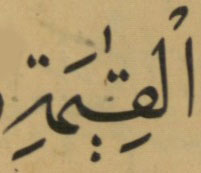 اْلقِيٰمَةِ